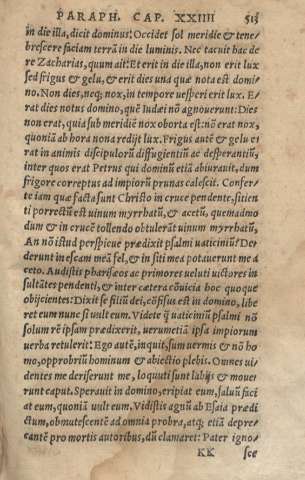 PARAPH. CAP. XXIIII 513
in die illa, dicit dominus: Occidet sol meridie & tene
brescere faciam terrã in die luminis. Nec tacuit hac de
re Zacharias, quum ait: Et erit in die illa, non erit lux
sed frigus & gelu, & erit dies una quæ nota est domi-
no. Non dies, neq; nox, in tempore uesperi erit lux. E-
rat dies notus domino, quẽ Iudæi nõ agnouerunt: Dies
non erat, quia sub meridiẽ nox oborta est: nõ erat nox,
quoniã ab hora nona redijt lux. Frigus autẽ & gelu e-
rat in animis discipulorũ diffugientiũ ac desperantiũ,
inter quos erat Petrus qui dominũ etiã abiurauit, dum
frigore correptus ad impiorũ prunas calescit. Confer-
te iam quæ facta sunt Christo in cruce pendente, sitien
ti porrectũ est uinum myrrhatũ, & acetũ, quemadmo
dum & in crucẽ tollendo obtulerãt uinum myrrhatũ,
An nõ istud perspicue prædixit psalmi uaticiniũ? De-
derunt in escam meã fel, & in siti mea potauerunt me a
ceto. Audistis pharisæos ac primores ueluti uictores in
sultãtes pendenti, & inter cætera cõuicia hoc quoque
obijcientes: Dixit se filiũ dei, cõfisus est in domino, libe
ret eum nunc si uult eum. Videte ꝗ̃ uaticiniũ psalmi nõ
solum rẽ ipsam prædixerit, uerumetiã ipsa impiorum
uerba retulerit: Ego autẽ, inquit, sum uermis & nõ ho
mo, opprobriũ hominum & abiectio plebis. Omnes ui
dentes me deriserunt me, loquuti sunt labijs & moue
runt caput. Sperauit in domino, eripiat eum, saluũ faci
at eum, quoniã uult eum. Vidistis agnũ ab Esaia prædi
ctum, obmutescentẽ ad omnia probra, atq; etiã depre-
cantẽ pro mortis autoribus, dũ clamaret: Pater igno-
KK sce